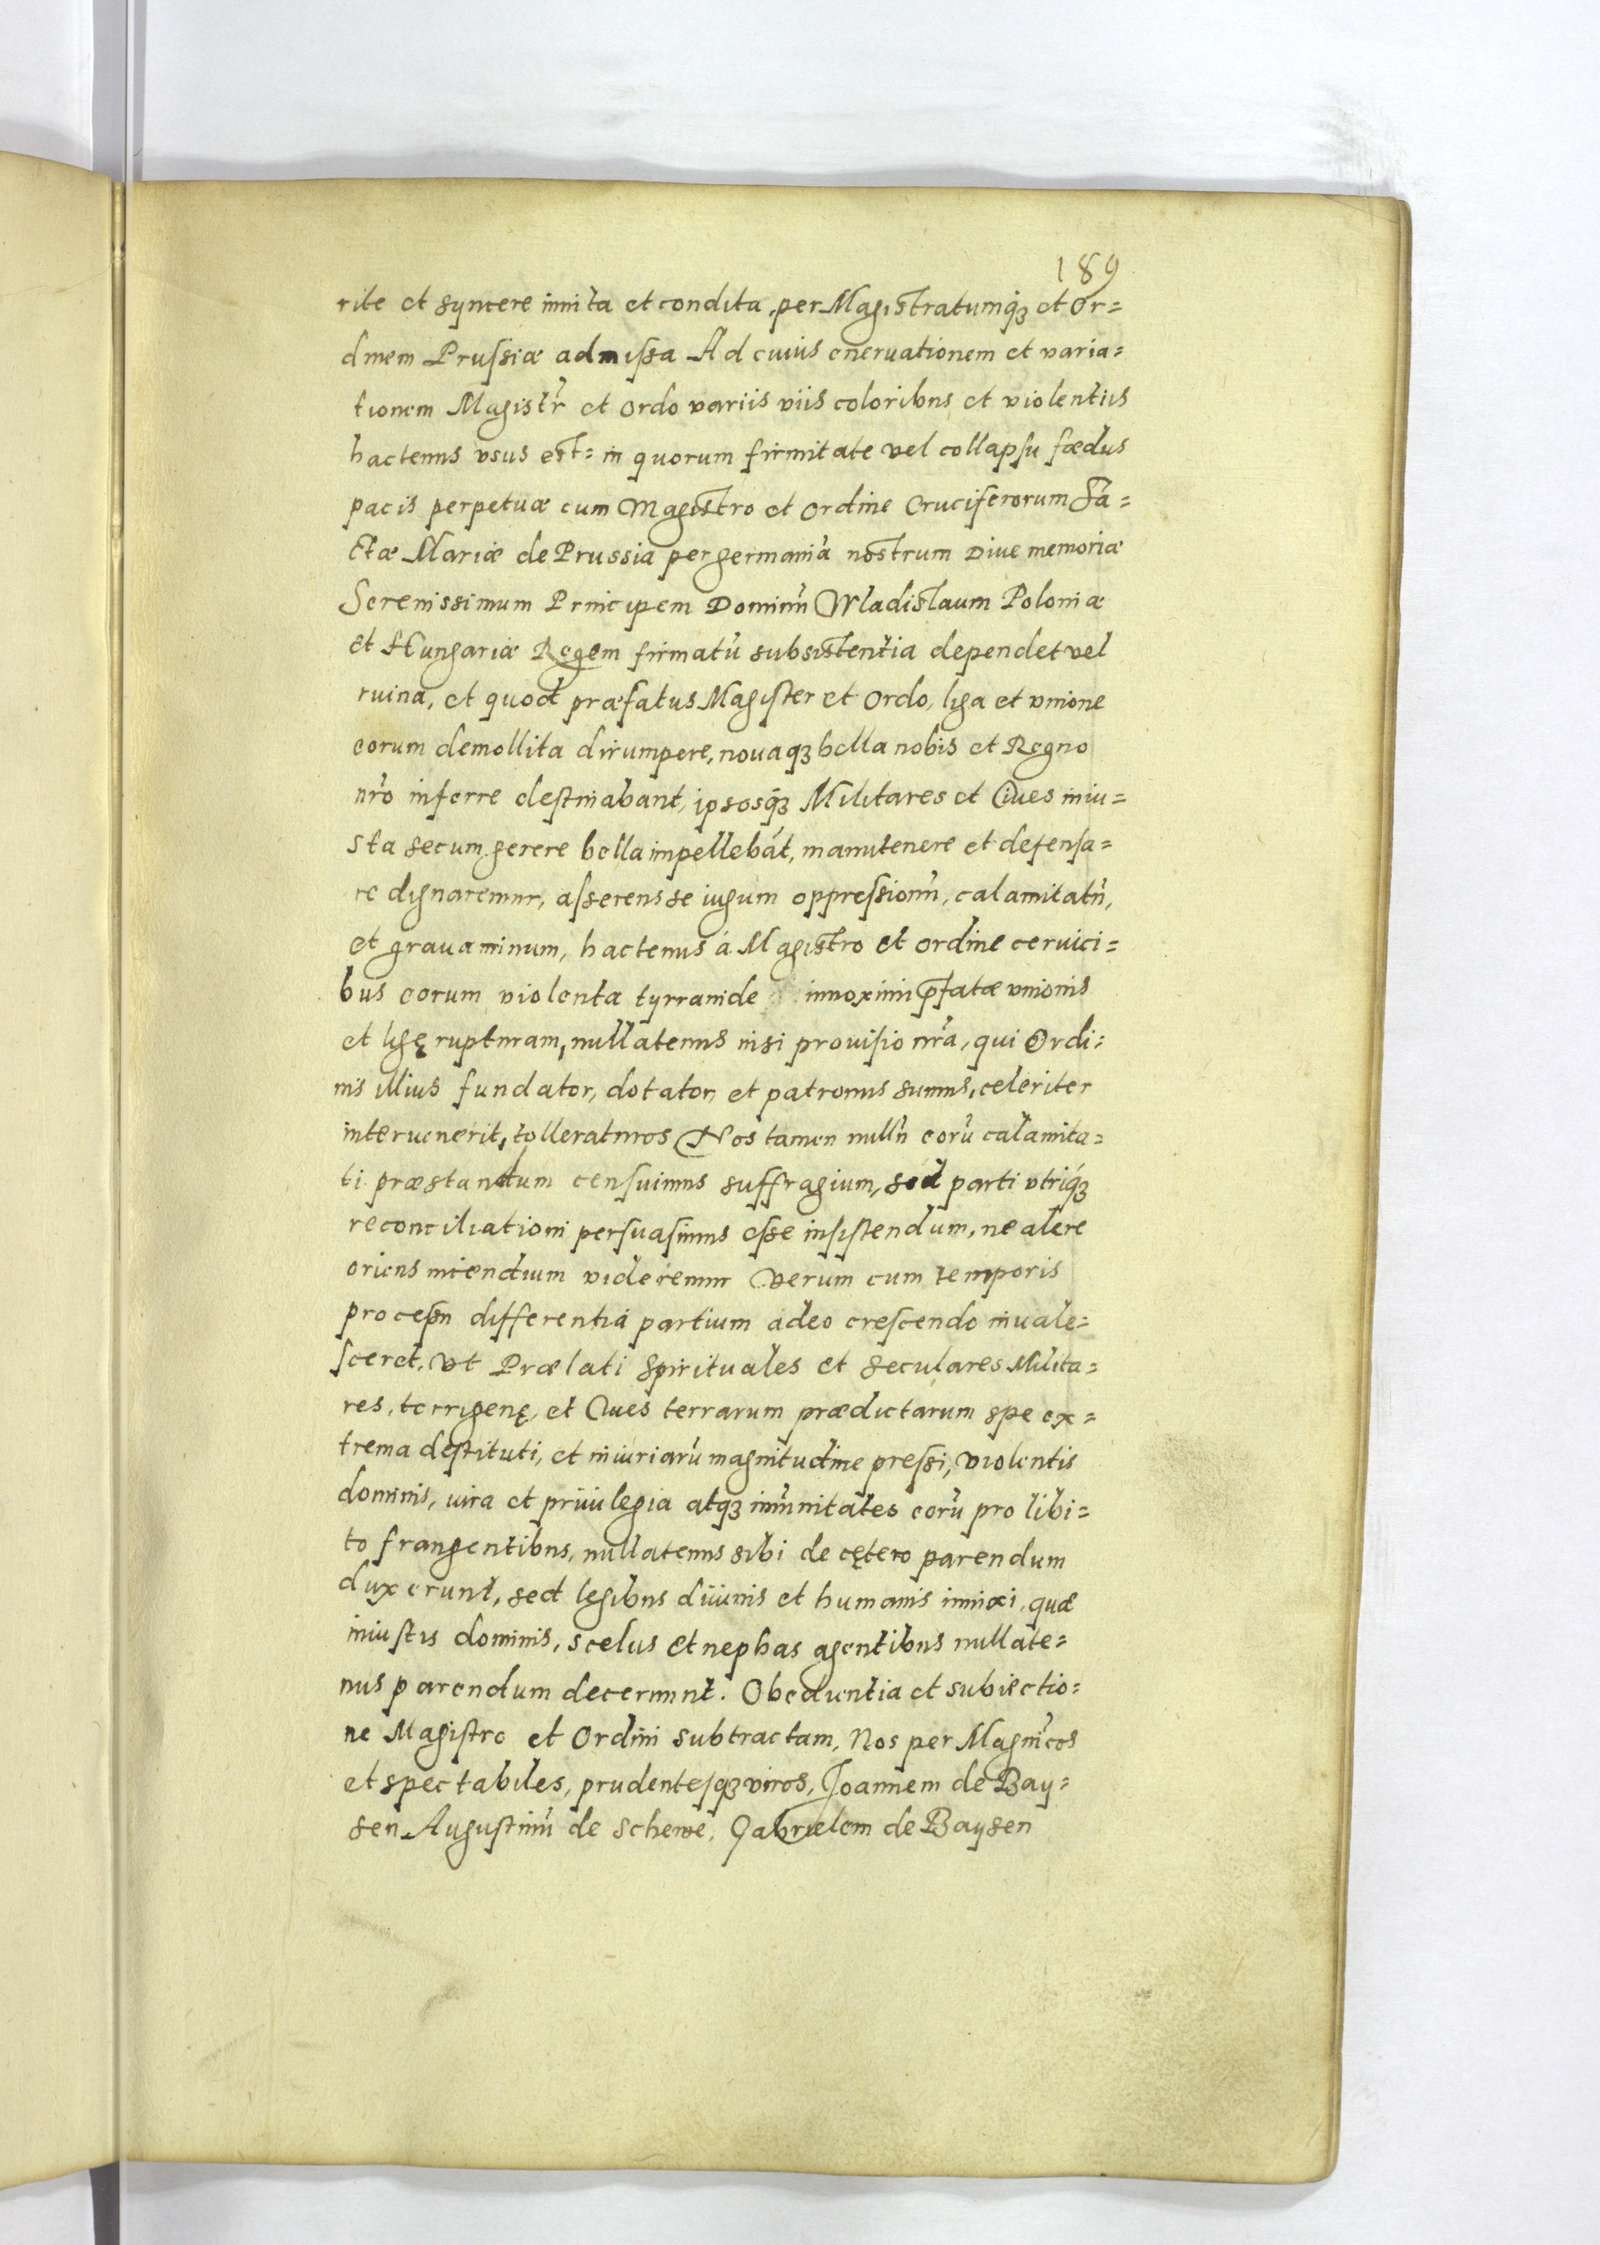 189
rite et syncere innita et condita, per Magistratumq́ꝫ et Or=
dinem Prussiæ admissa Ad cuius eneruationem et varia=
tionem Magistr̃ et Ordo variis viis coloribus et violentiis
hactenus vsus est: in quorum firmitate vel collapsu fœdus
pacis perpetuæ cum Magistro et Ordine Cruciferorum Sã=
ctæ Mariæ de Prussia per germanũ nostrum Diue memoriæ
Serenissimum Principem Dominũ Wladislaum Poloniæ
et Hungariæ Regem firmatũ subsistentia dependet vel
ruina, et quod præfatus Magister et Ordo, liga et vnione
eorum demollita dirumpere, nouaqꝫ bella nobis et Regno
nr̃o inferre destinabant, ipsosq́ꝫ Militares et Ciues iniu=
sta secum gerere bella impellebãt, manutenere et defensa=
re dignaremur, asserens se iugum oppressionũ, calamitatũ,
et grauaminum, hactenus á Magistro et ordine ceruici=
bus eorum violenta tyrranide innoximi p̃fatæ vnionis
et ligę rupturam, nullatenus nisi prouisio nr̃a, qui Ordi=
nis illius fundator, dotator, et patronus sumus, celeriter
interuenerit, tolleraturos Nos tamen nullũ eorũ calamita=
ti præstandum censuimus suffragium, sed parti vtriq́ꝫ
reconciliationi persuasimus esse insistendum, ne alere
oriens incendium videremur Verum cum temporis
processu differentia partium adeo crescendo inuale=
sceret, vt Prælati Spirituales et seculares Milita=
res, terrigenę, et Ciues terrarum prædictarum spe ex=
trema destituti, et iniuriarũ magnitudine pressi, violentis
dominis, iura et priuilegia atqꝫ imũnitates eorũ pro libi=
to frangentibus, nullatenus sibi de cętero parendum
duxerunt, sed legibus diuinis et humanis innixi, quæ
iniustis dominis, scelus et nephas agentibus nullate=
nus parendum decernunt. Obedientia et subiectio=
ne Magistro et Ordini subtractam, Nos per Magnĩcos
et spectabiles, prudentesqꝫ viros, Joannem de Bay=
sen Augustinũ de schewe, Gabrielem de Baysen